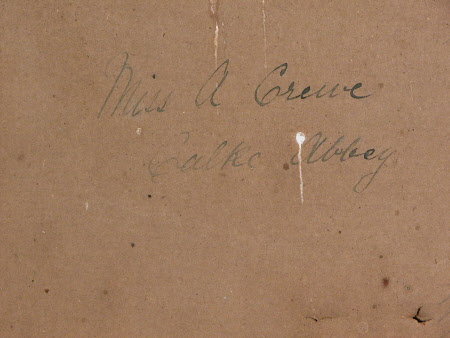 Miss A Crewe
Calke Abbey